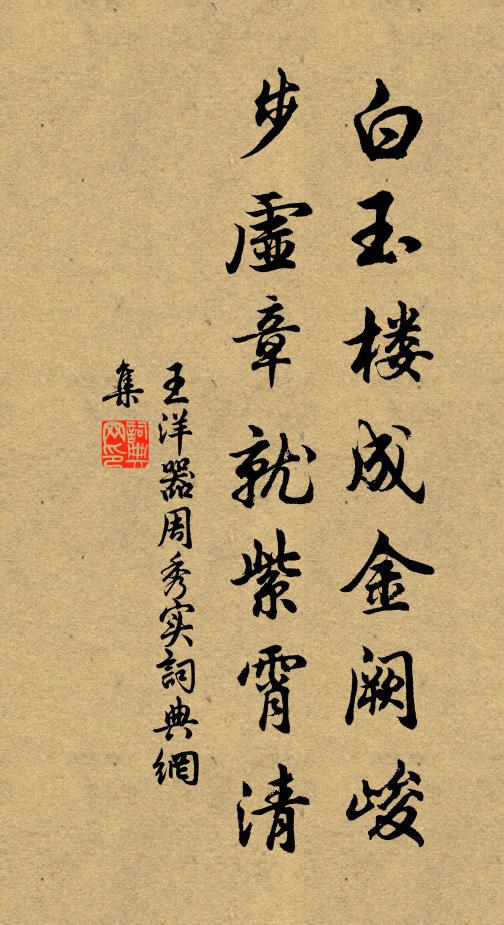 白玉楼成金阙峻
步虚章就紫霄清
王洋器周秀实詞典網
集
詞典网印